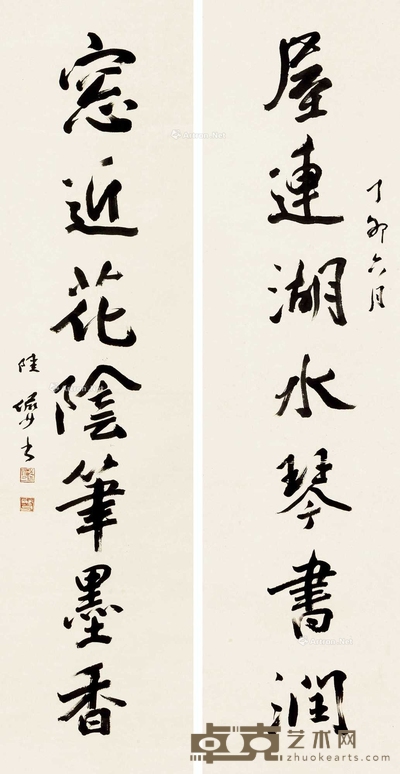 屋連湖水琴書潤
丁卯六月
窓近花陰筆墨香
陸儼少書
卓克艺术网
zhuokearts.com